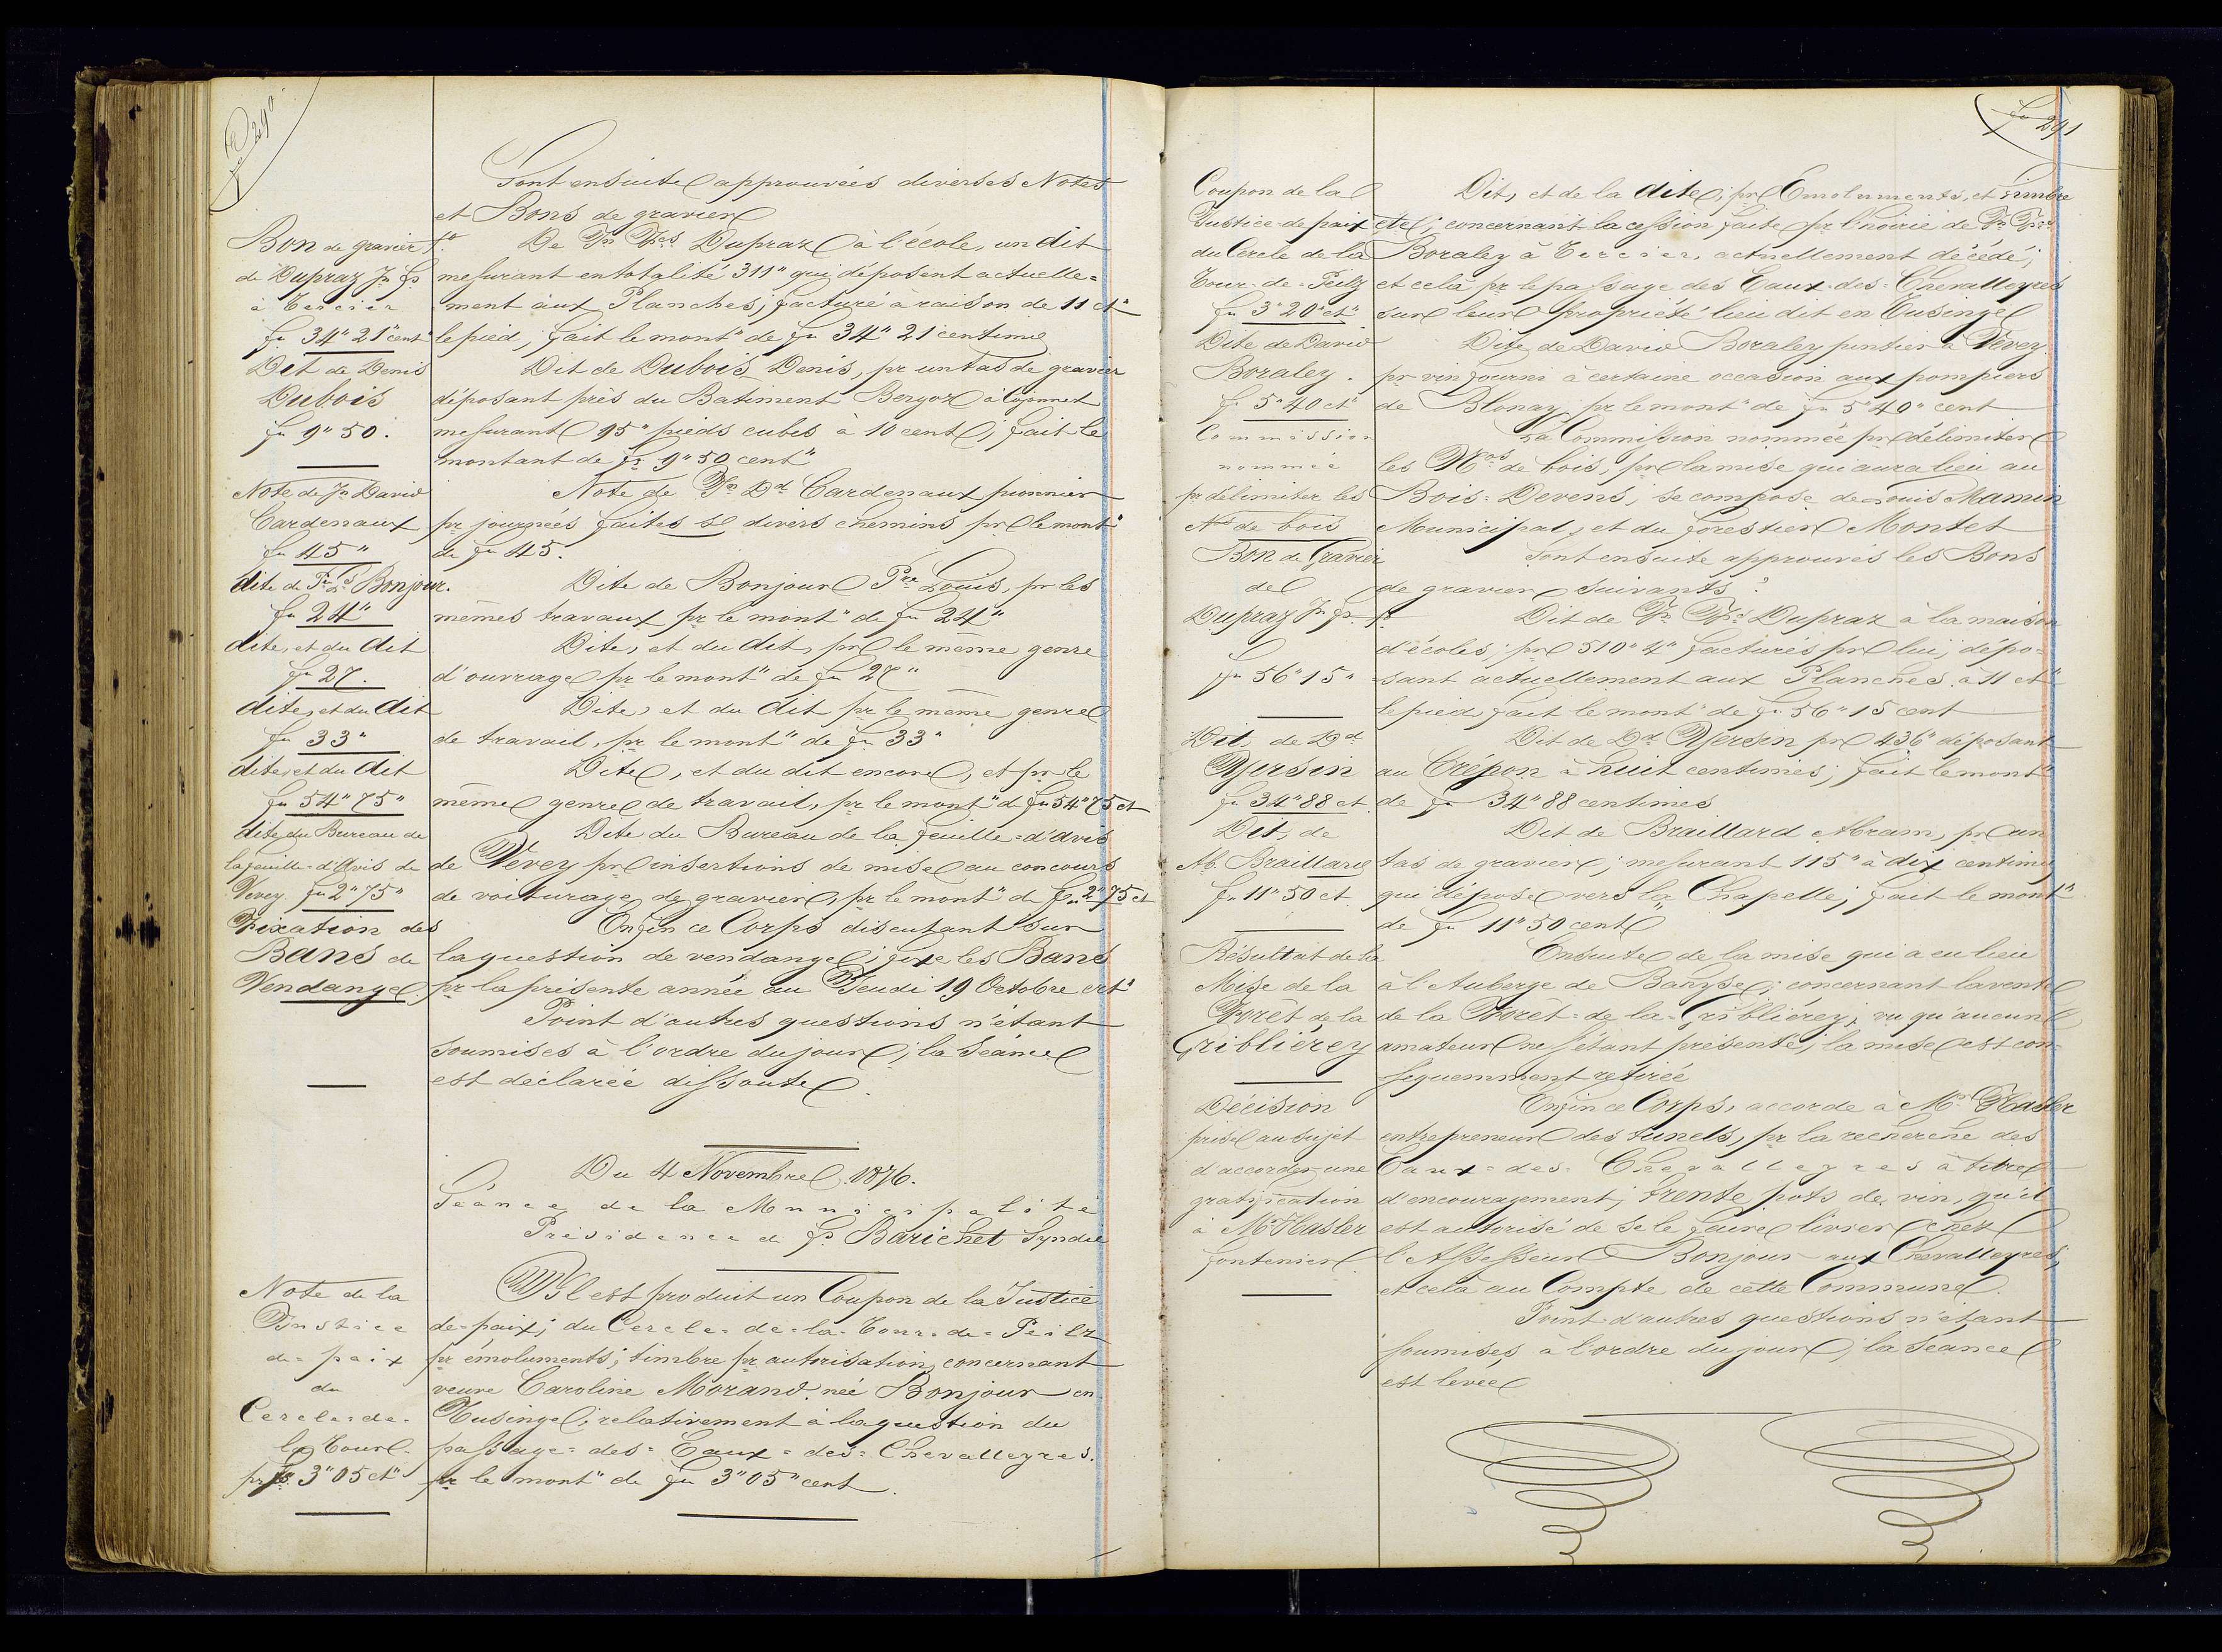 fo 290.
Sont ensuite approuvées diverses Notes
et Bons de gravier
Bon de gravier
de Dupraz Jn Fs
à Tercier
fr 34" 21" cent
De Jn Fçs Dupraz à l'école, un dit
mesurant en totalité 311" qui déposent actuelle=
ment aux Planches; facturé à raison de 11 ct"
le pied, fait le mont" de fr 34" 21 centime
Dit de Denis
Dubois
fr 9" 50.
Dit de Dubois Denis, pr un tas de gravier
déposant près du Batiment Bergoz à Cojonnet
mesurant 95" pieds cubes à 10 cent; fait le
montant de fr 9" 50 cent"
Note de Jn David
Cardenaux
fr 45"
Note de Jn Dd Cardenaux pionnier
pr journées faites s divers chemins pr le mont"
de fr 45.
dite de Pre Ls Bonjour.
fr 24"
Dite de Bonjour Pre Louis, pr les
mêmes travaux pr le mont" de fr 24"
dite, et du dit
fr 27.
Dite, et du dit, pr le même genre
d'ouvrage pr le mont" de fr 27"
dite, et du dit
fr 33"
Dite, et du dit pr le même genre
de travail, pr le mont" de fr 33"
dite, et du dit
fr 54" 75"
Dite, et du dit encore, et pr le
même genre de travail, pr le mont" d fr 54" 75 ct
dite du Bureau de
la feuille=d'Avis de
Vevey fr 2" 75"
Dite du Bureau de la feuille=d'avis
de Vevey pr insertions de mise au concours
de voiturage de gravier, pr le mont" de fr 2" 75 ct
Fixation des
Bans de
Vendange.
Enfin ce Corps discutant sur
la question de vendange; fixe les Bans
pr la présente année au Jeudi 19 Octobre crt"
Point d'autres questions n'étant
soumises à l'ordre du jour; la Séance
est déclarée dissoute.
Du 4 Novembre 1876.
Séance de la Municipalité
Présidence de fs Barichet Syndic
Note de la
Justice
de=paix
du
Cercle=de=
la Tour=
pr fr 3" 05 ct"
Il est produit un Coupon de la Justice
de=paix; du Cercle=de=la=Tour=de=Peilz
pr émoluments; timbre pr autorisation concernant
veuve Caroline Morand née Bonjour en
Tusinge; relativement à la question du
passage=des=Eaux=des=Chevalleyres.
pr le mont" de fr 3" 05" cent.
fo 291
Coupon de la
Justice=de=paix
du Cercle de la
Tour=de=Peilz
fr 3" 20" ct"
Dit, et de la dite; pr Emoluments, et timbre
etc; concernant la cession faite pr l'hoirie de Jn Fçs
Boraley à Tercier, actuellement décédé;
et cela pr le passage des Eaux=des=Chevalleyres
sur leur propriété lieu dit en Tusinge
Dite de David
Boraley.
fr 5" 40 ct"
Dite de David Boraley pintier à Vevey
pr vin fourni à certaine occasion aux pompiers
de Blonay pr le mont" de fr 5" 40" cent
Commission
nommée
pr délimiter les
Nos de bois
La Commission nommée pr délimiter
les Nos de bois, pr la mise qui aura lieu au
Bois=Devens, se compose de Louis Mamin
Municipal, et du forestier Montet
Bon de Gravier
de
Dupraz Jn Fs
fr 56" 15"
Sont ensuite approuvés les Bons
de gravier suivants:
Dit de Jn Fçs Dupraz à la maison
d'écoles, pr 510" 4" facturés pr lui; dépo=
sant actuellement aux Planches à 11 ct"
le pied, fait le mont" de fr 56" 15 cent
Dit, de Dd
Yersin
fr 34" 88 ct.
Dit de Dd Yersin pr 436" déposant
au Crépon à huit centimes; fait le mont"
de fr 34" 88 centimes
Dit, de
Ab. Braillard
fr 11" 50 ct
Dit de Braillard Abram, pr un
tas de gravier; mesurant 115" à dix centimes
qui dépose vers la Chapelle; fait le mont"
de fr 11" 50 cent"
Résultat de la
Mise de la
Forêt de la
Griblièrey
Ensuite de la mise qui a eu lieu
à l'Auberge de ; concernant la vente
de la Forêt=de=la=Griblièrey; vu qu'aucun
amateur ne s'étant présenté, la mise est con=
séquemment retirée
Décision
prise au sujet
d'accorder une
gratification
à Mr Hasler
fontenier
Enfin ce Corps, accorde à Mr Hasler
entrepreneur des tunels, pr la recherche des
Eaux=des=Chevalleyres à titre
d'encouragement; trente pots de vin, qu'il
est autorisé de se le faire livrer chez
l'Assesseur Bonjour aux Chevalleyres,
et cela au Compte de cette Commune.
Point d'autres questions n'étant
soumises à l'ordre du jour, la Séance
est levée